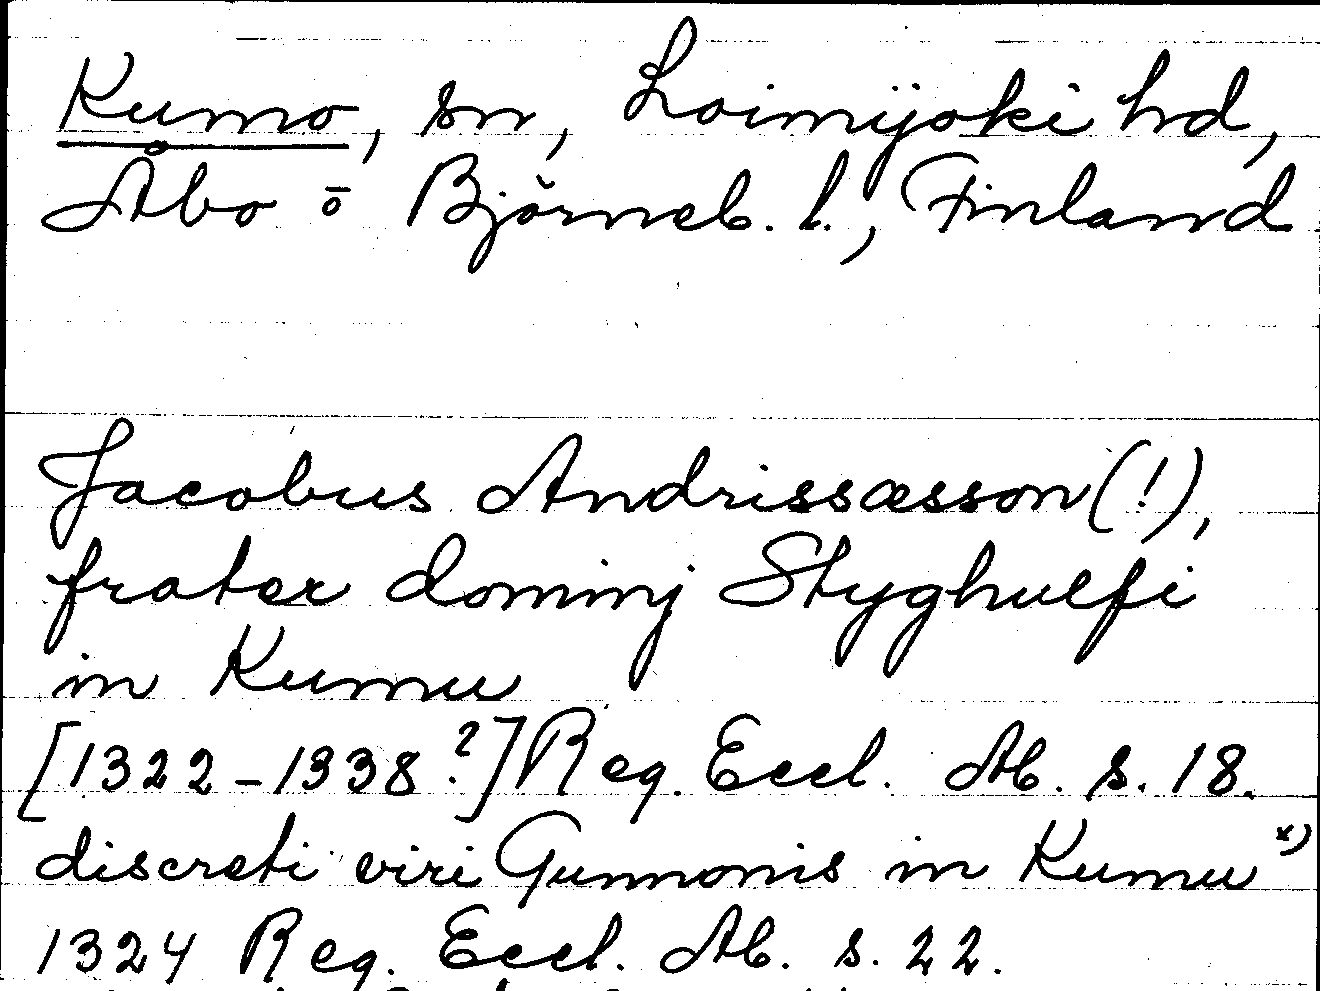 Kumo, sn, Loimijoki hd,
Åbo ō Björneb. l., Finland
Jacobus Andrissæsson (!),
frater dominj Styghulfi
in Kumu
[1322-1338?] Reg. Eccl. Ab. s. 18.
discreti viri Gunnonis in Kumu x)
1324 Reg. Eccl. Ab. s. 22.